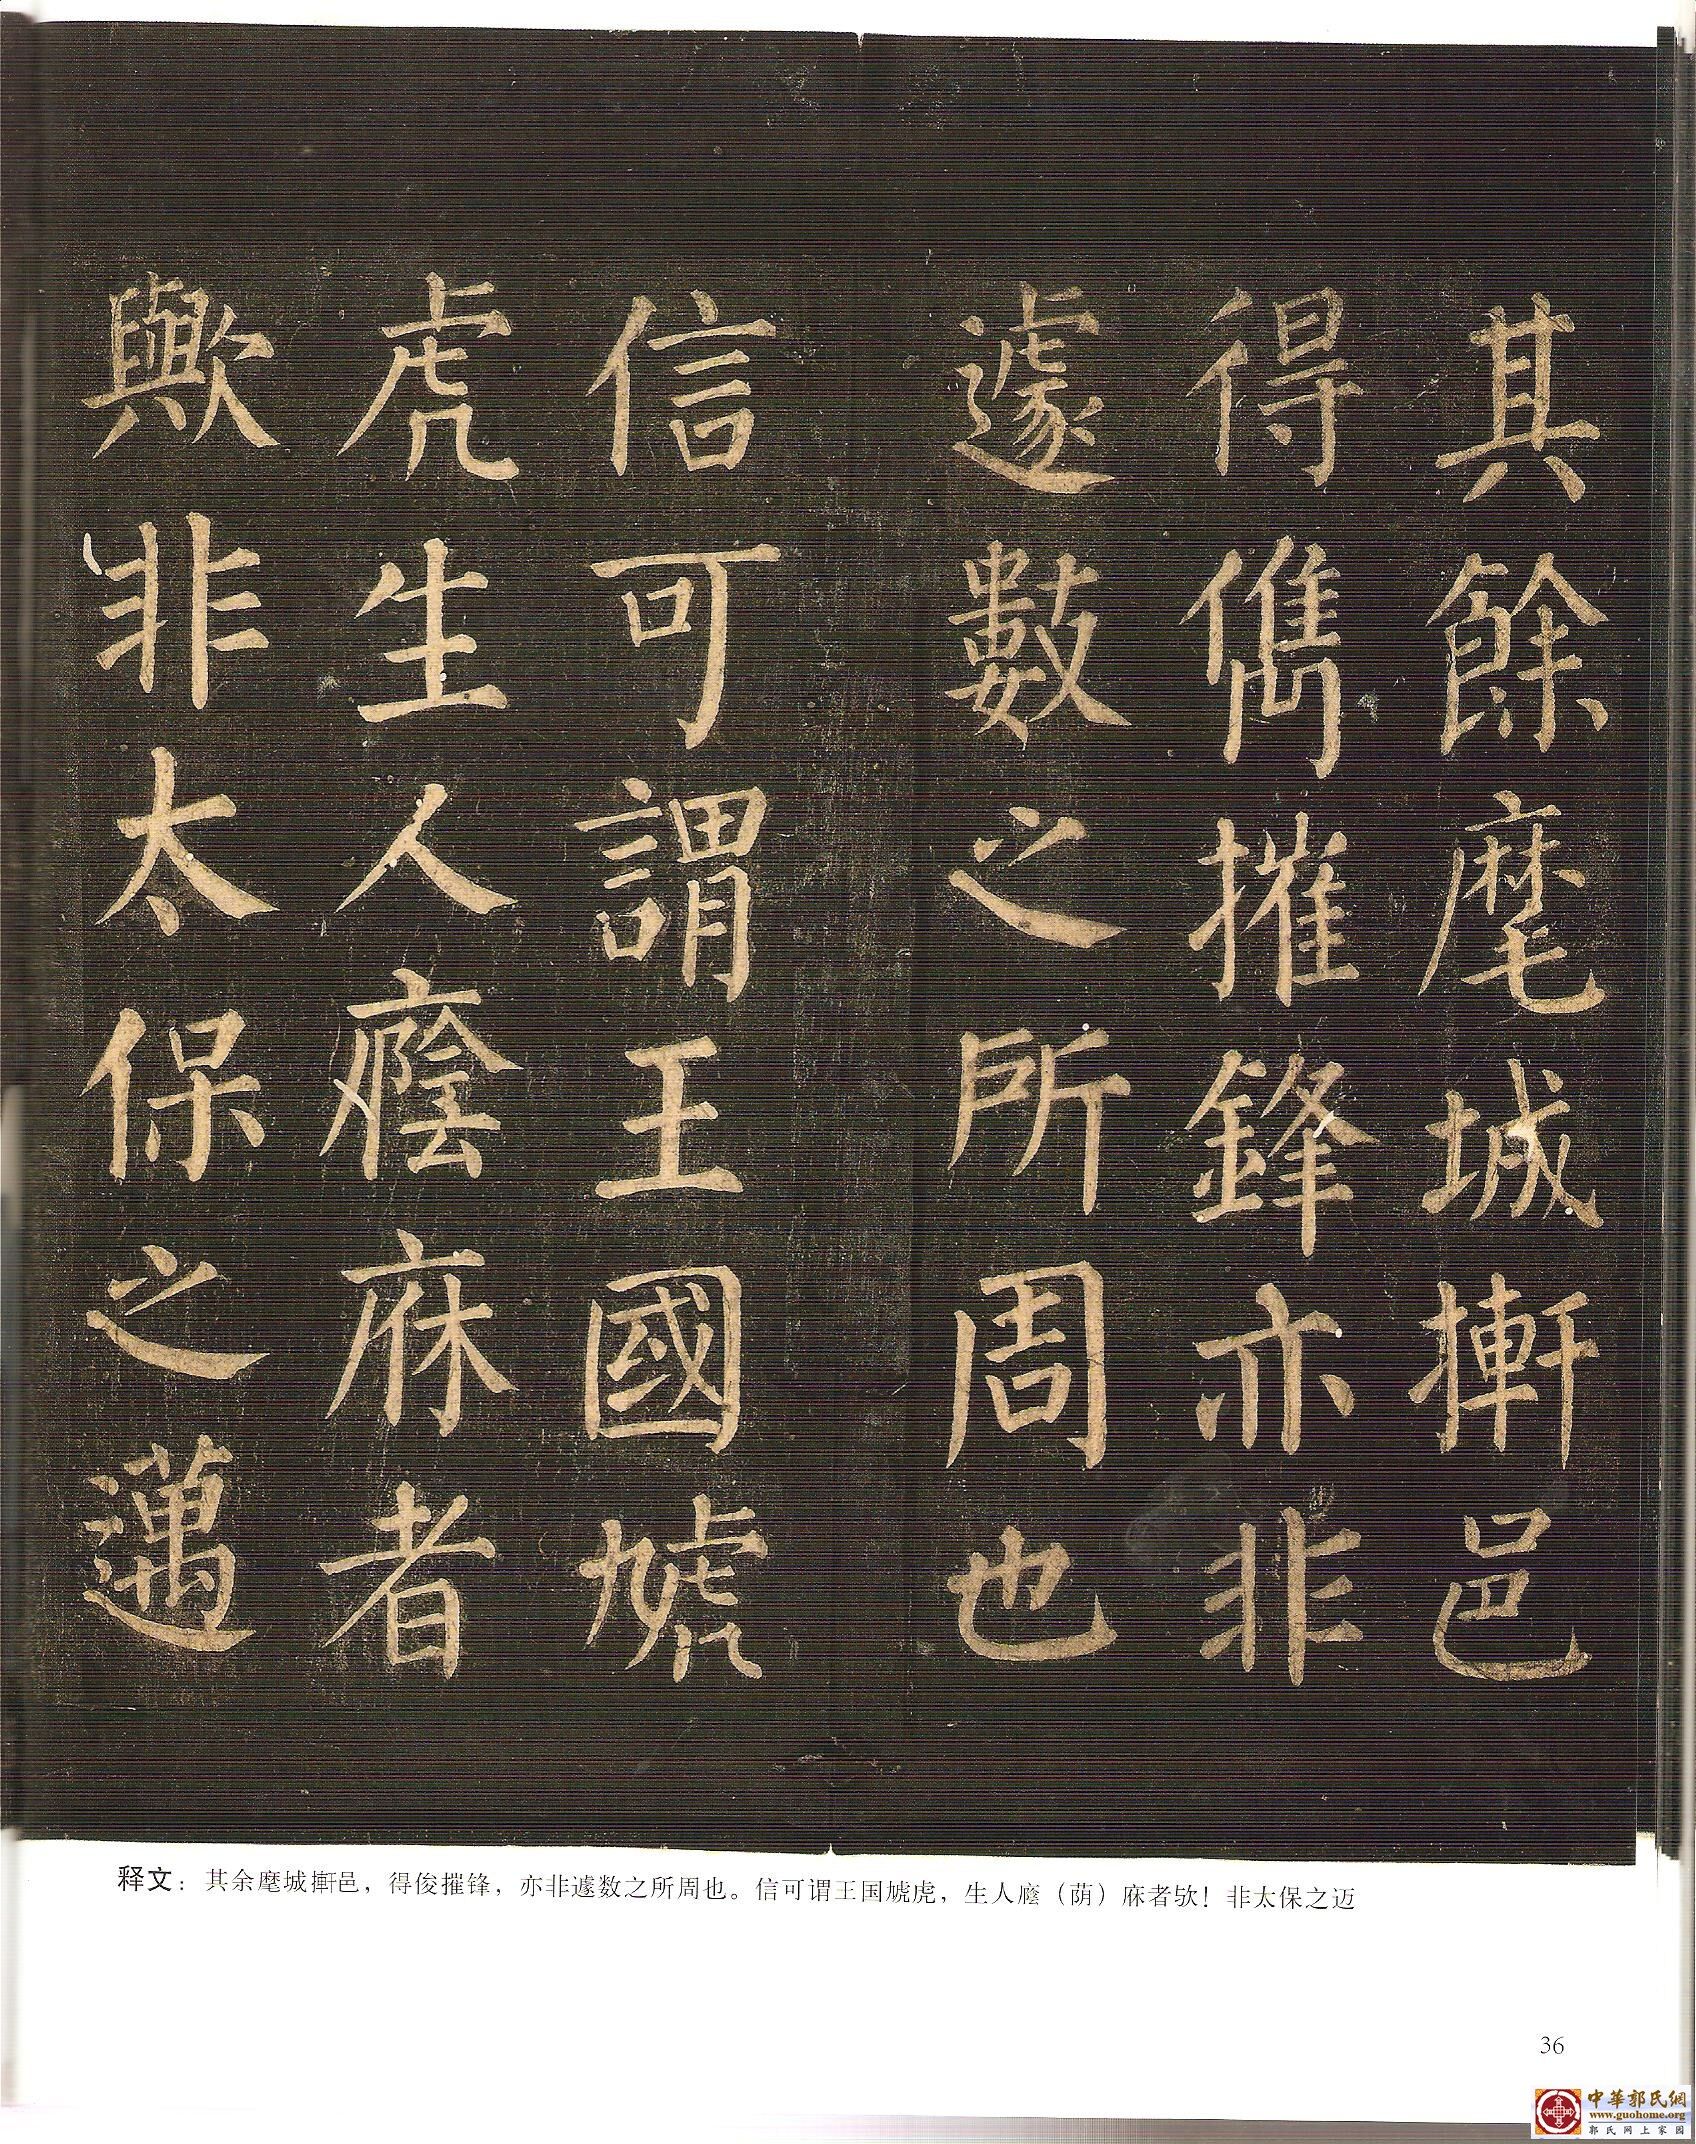 其餘麾城摲邑
得儁摧鋒亦非
遽數之所周也
信可謂王國虓
虎生人廕庥者
歟非太保之邁
释文：其余麾城摲邑，得俊摧锋，亦非遽数之所周也。信可谓王国虓虎，生人廕（荫）庥者欤！非太保之迈
36
中華郭氏網
www.guohome.org
郭氏网上家园